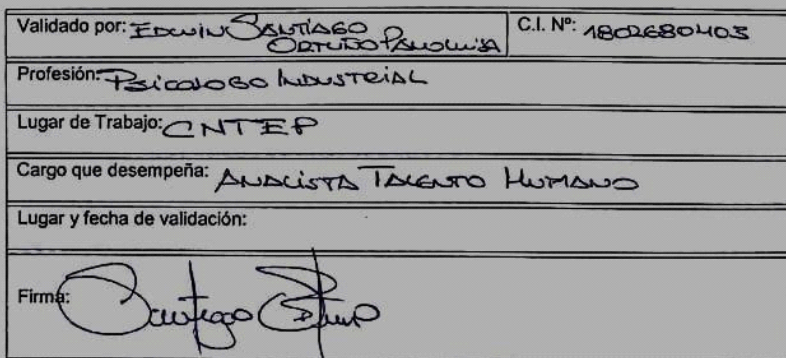 Validado por: EDWIN SANTIAGO
ORTUÑO
C.I. Nº: 1802680403
Profesión: PSICOLOGO INDUSTRIAL
Lugar de Trabajo: CNTEP
Cargo que desempeña: ANALISTA TALENTO HUMANO
Lugar y fecha de validación:
Firma: Santiago